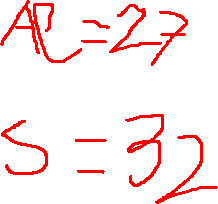 AP=27
S=32